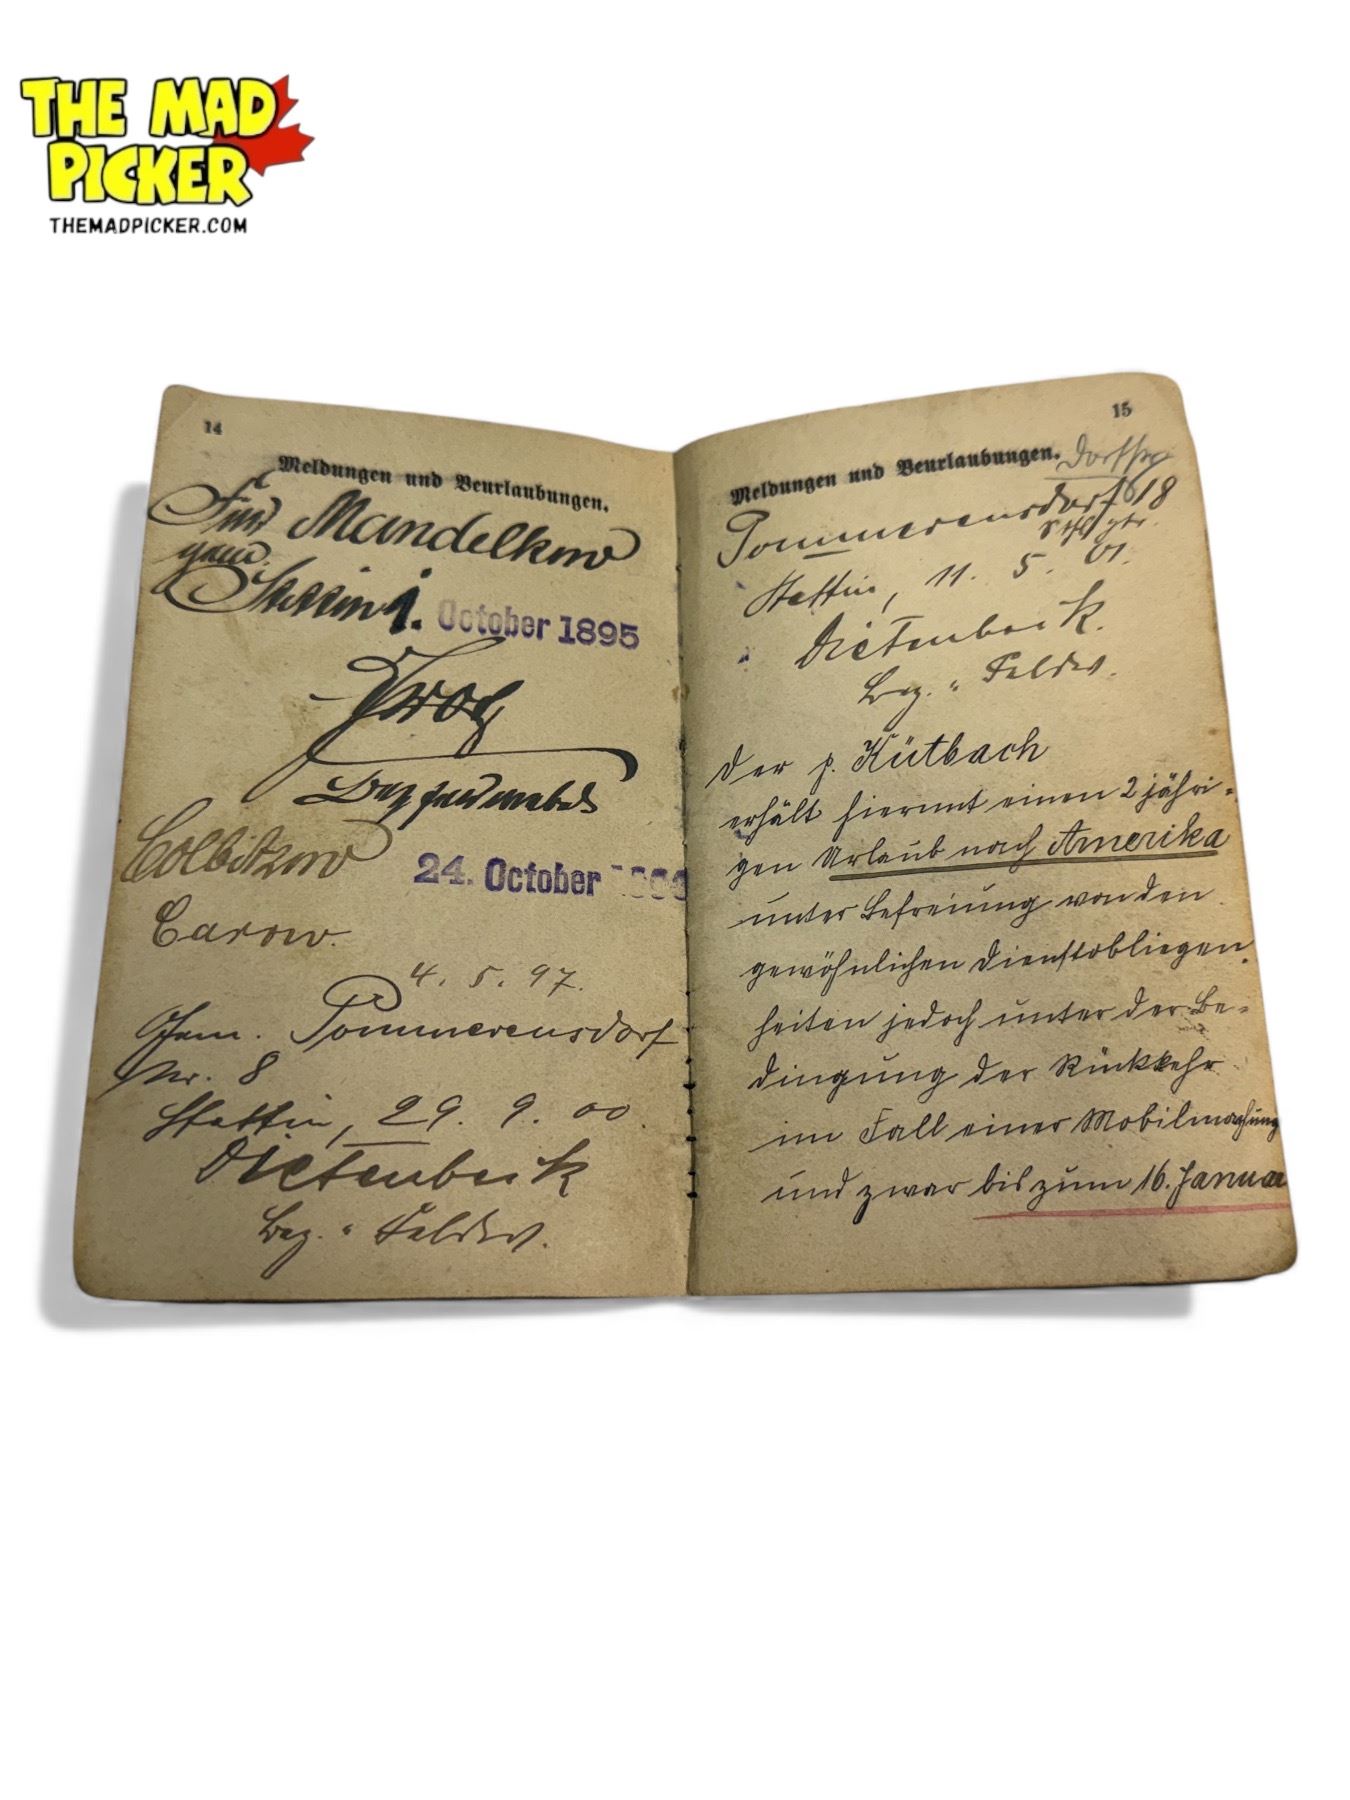 THE MAD
PICKER
THEMADPICKER.COM
14
Meldungen und Beurlaubungen.
Für Mandelkow
Stettin 1. October 1895
Bezfeldwebel
Colbitzow
24. October
Carow.
4. 5. 97.
Pommerensdorf
Nr. 8
Stettin, 29. 9. 00
Dictenbeck
Bez. " Feldw.
15
Meldungen und Beurlaubungen.
Pommerensdorf 18
Stettin, 11. 5. 01.
Dictenbeck.
Bez. " Feldw.
Der p. Kütbach
erhält hiermit einen 2 jähri-
gen Urlaub nach Amerika
unter Befreiung von den
gewöhnlichen Dienstobliegen-
heiten jedoch unter der Be-
dingung der Rückkehr
im Fall einer Mobilmachung
und zwar bis zum 16. Januar